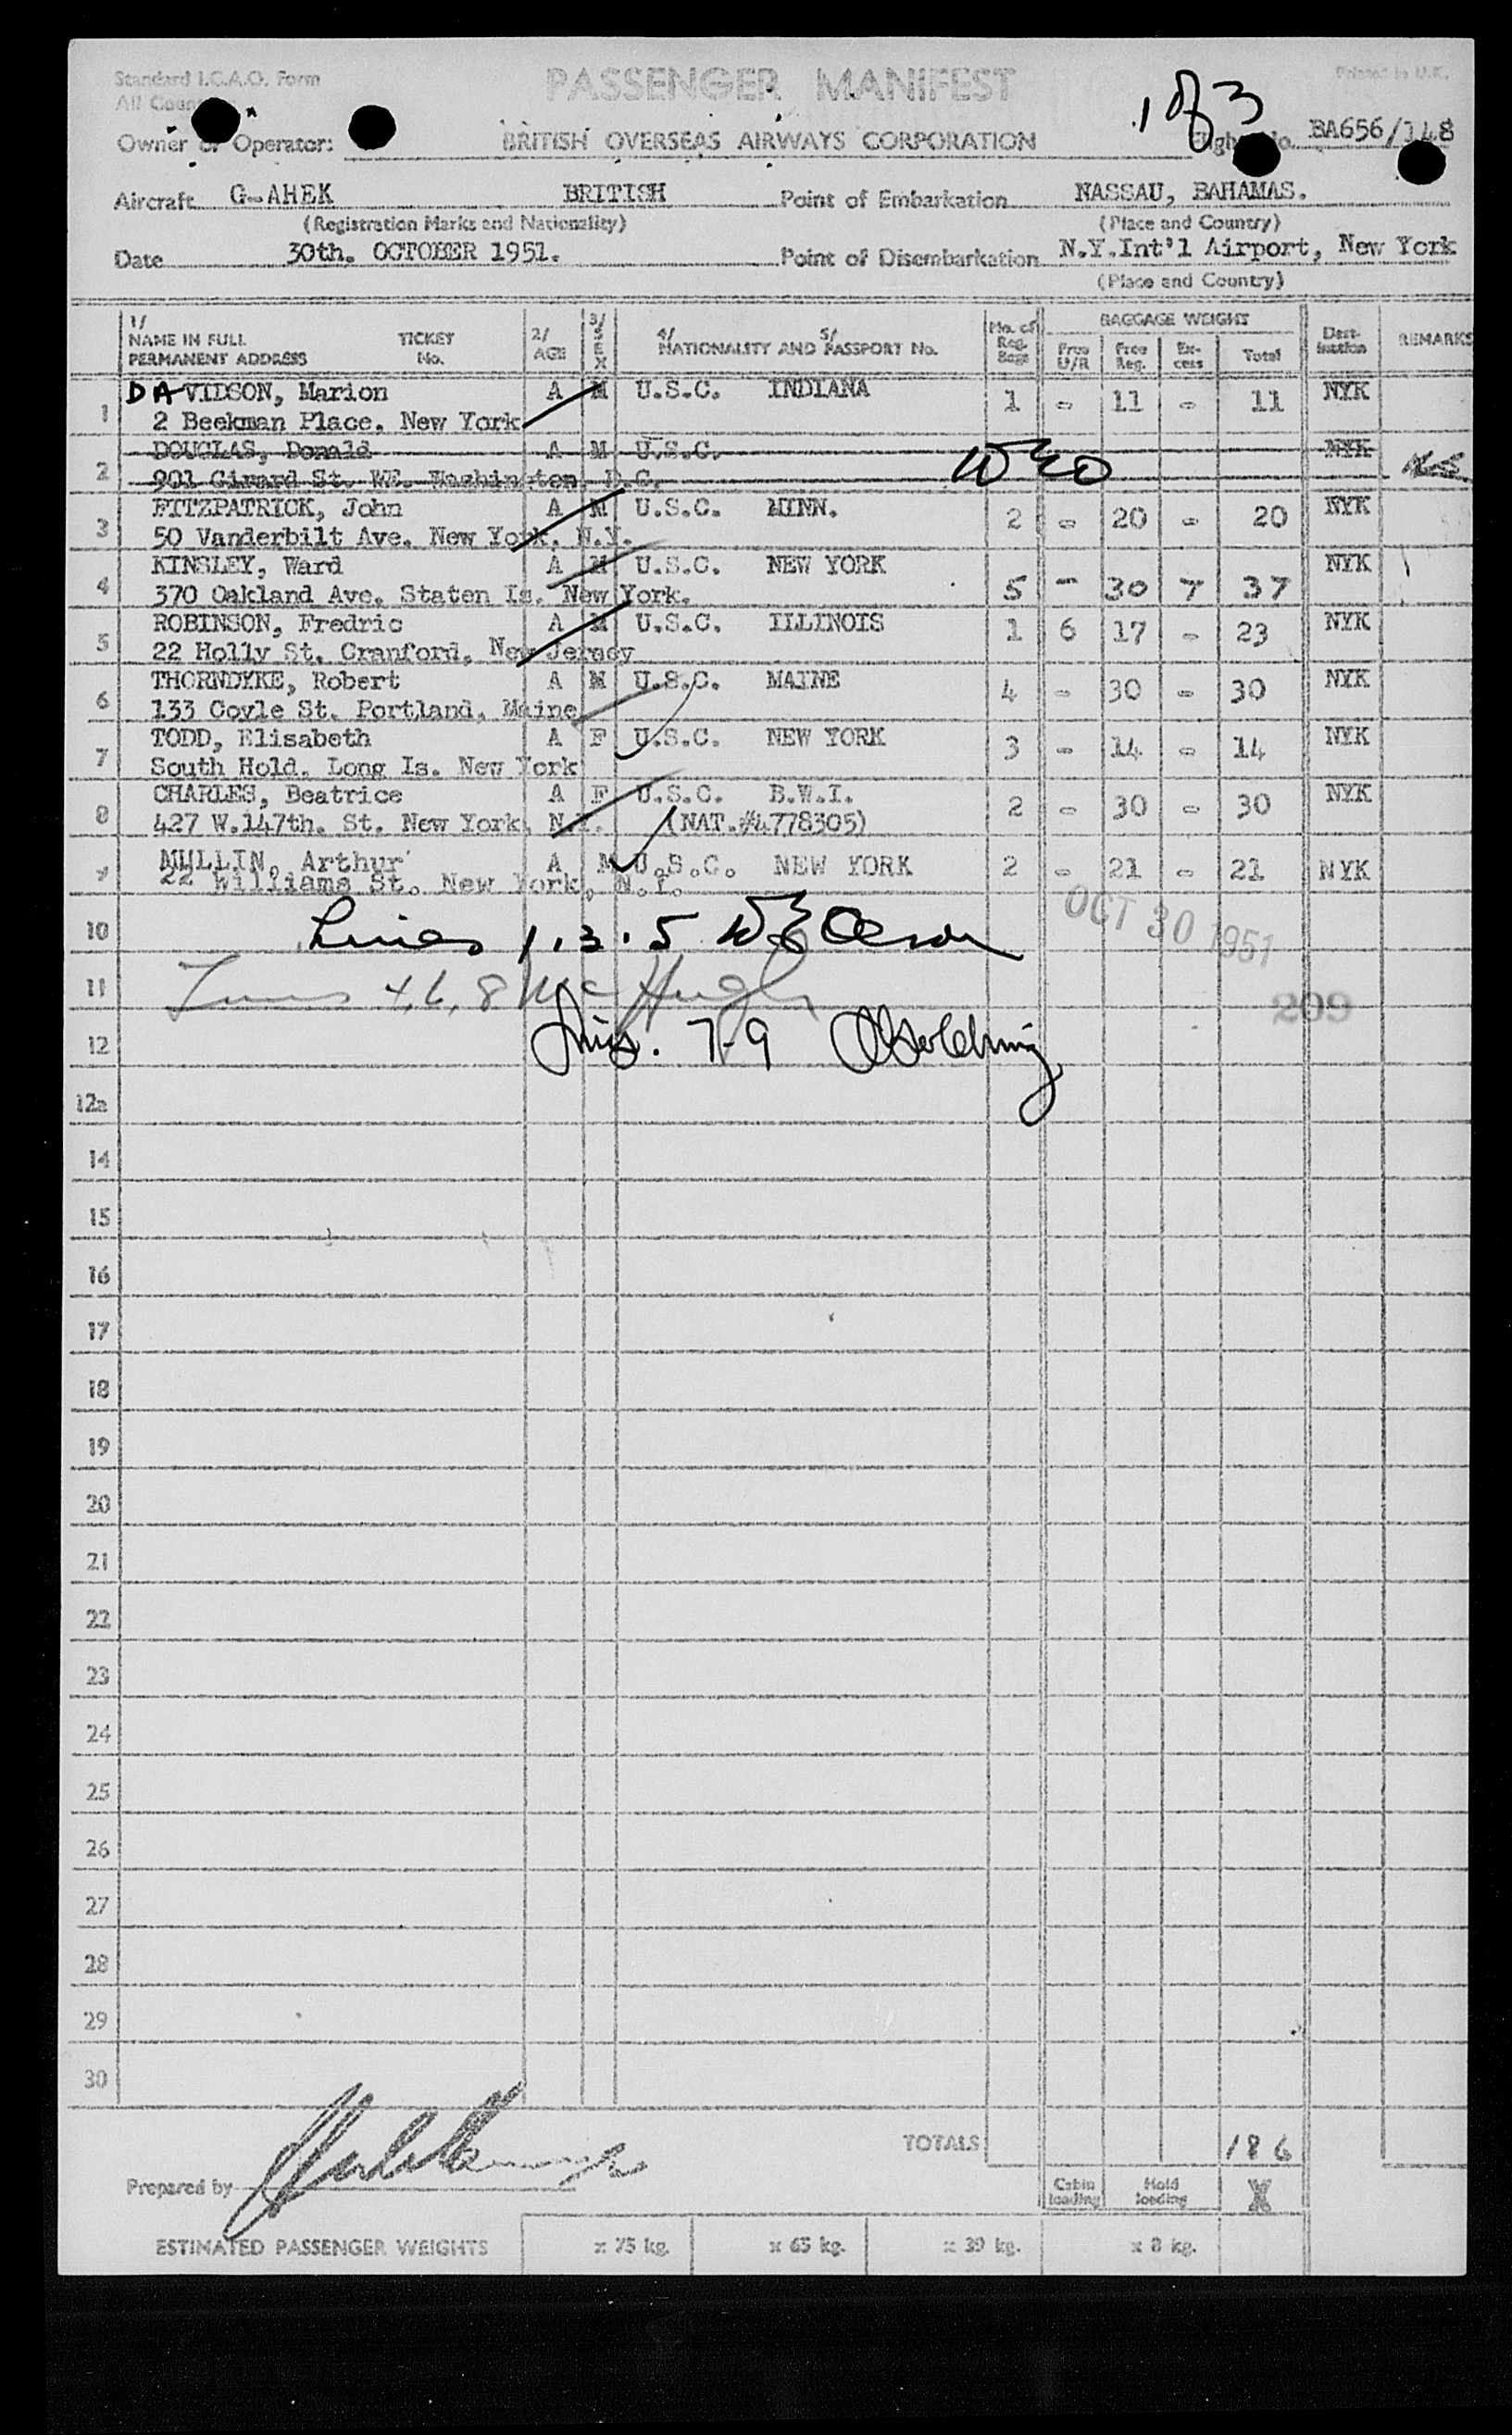 Standard I.C.A.O. Form
PASSENGER MANIFEST
Printed in U.K.
All
1 of 3
Owner or Operator: BRITISH OVERSEAS AIRWAYS CORPORATION No. BA656/148
Aircraft G-AHEK BRITISH Point of Embarkation NASSAU, BAHAMAS.
(Registration Marks and Nationality) (Place and Country)
Date 30th. OCTOBER 1951. Point of Disembarkation N.Y.Int'l Airport, New York
(Place and Country)
1/ NAME IN FULL PERMANENT ADDRESS TICKET No. 2/ AGE 3/ SEX 4/ NATIONALITY AND 5/ PASSPORT No. No. of Reg. Bags BAGGAGE WEIGHT Free U/R Free Reg. Ex-cess Total Dest-ination REMARKS
1 DAVIDSON, Marion A M U.S.C. INDIANA 1 - 11 - 11 NYK
2 Beekman Place. New York
2 DOUGLAS, Donald A M U.S.C. NYK
901 Girard St. WE. Washington, D.C.
3 FITZPATRICK, John A M U.S.C. MINN. 2 - 20 - 20 NYK
50 Vanderbilt Ave. New York. N.Y.
4 KINSLEY, Ward A M U.S.C. NEW YORK 5 - 30 7 37 NYK
370 Oakland Ave. Staten Is. New York.
5 ROBINSON, Fredric A M U.S.C. ILLINOIS 1 6 17 - 23 NYK
22 Holly St. Cranford, New Jersey
6 THORNDYKE, Robert A M U.S.C. MAINE 4 - 30 - 30 NYK
133 Coyle St. Portland, Maine
7 TODD, Elisabeth A F U.S.C. NEW YORK 3 - 14 - 14 NYK
South Hold. Long Is. New York
8 CHARLES, Beatrice A F U.S.C. B.W.I. 2 - 30 - 30 NYK
427 W.147th. St. New York, N.Y. (NAT.#4778305)
MULLIN, Arthur A M U.S.C. NEW YORK 2 - 21 - 21 NYK
22 Williams St. New York, N.Y.
OCT 30 1951
10 Lines 1.3.5 W E Olson
11 Lines 4,6,8 McHugh
209
12 Lines. 7-9
12a
14
15
16
17
18
19
20
21
22
23
24
25
26
27
28
29
30
TOTALS 186
Prepared by
Cabin loading Hold loading
ESTIMATED PASSENGER WEIGHTS x 75 kg. x 65 kg. x 39 kg. x 8 kg.